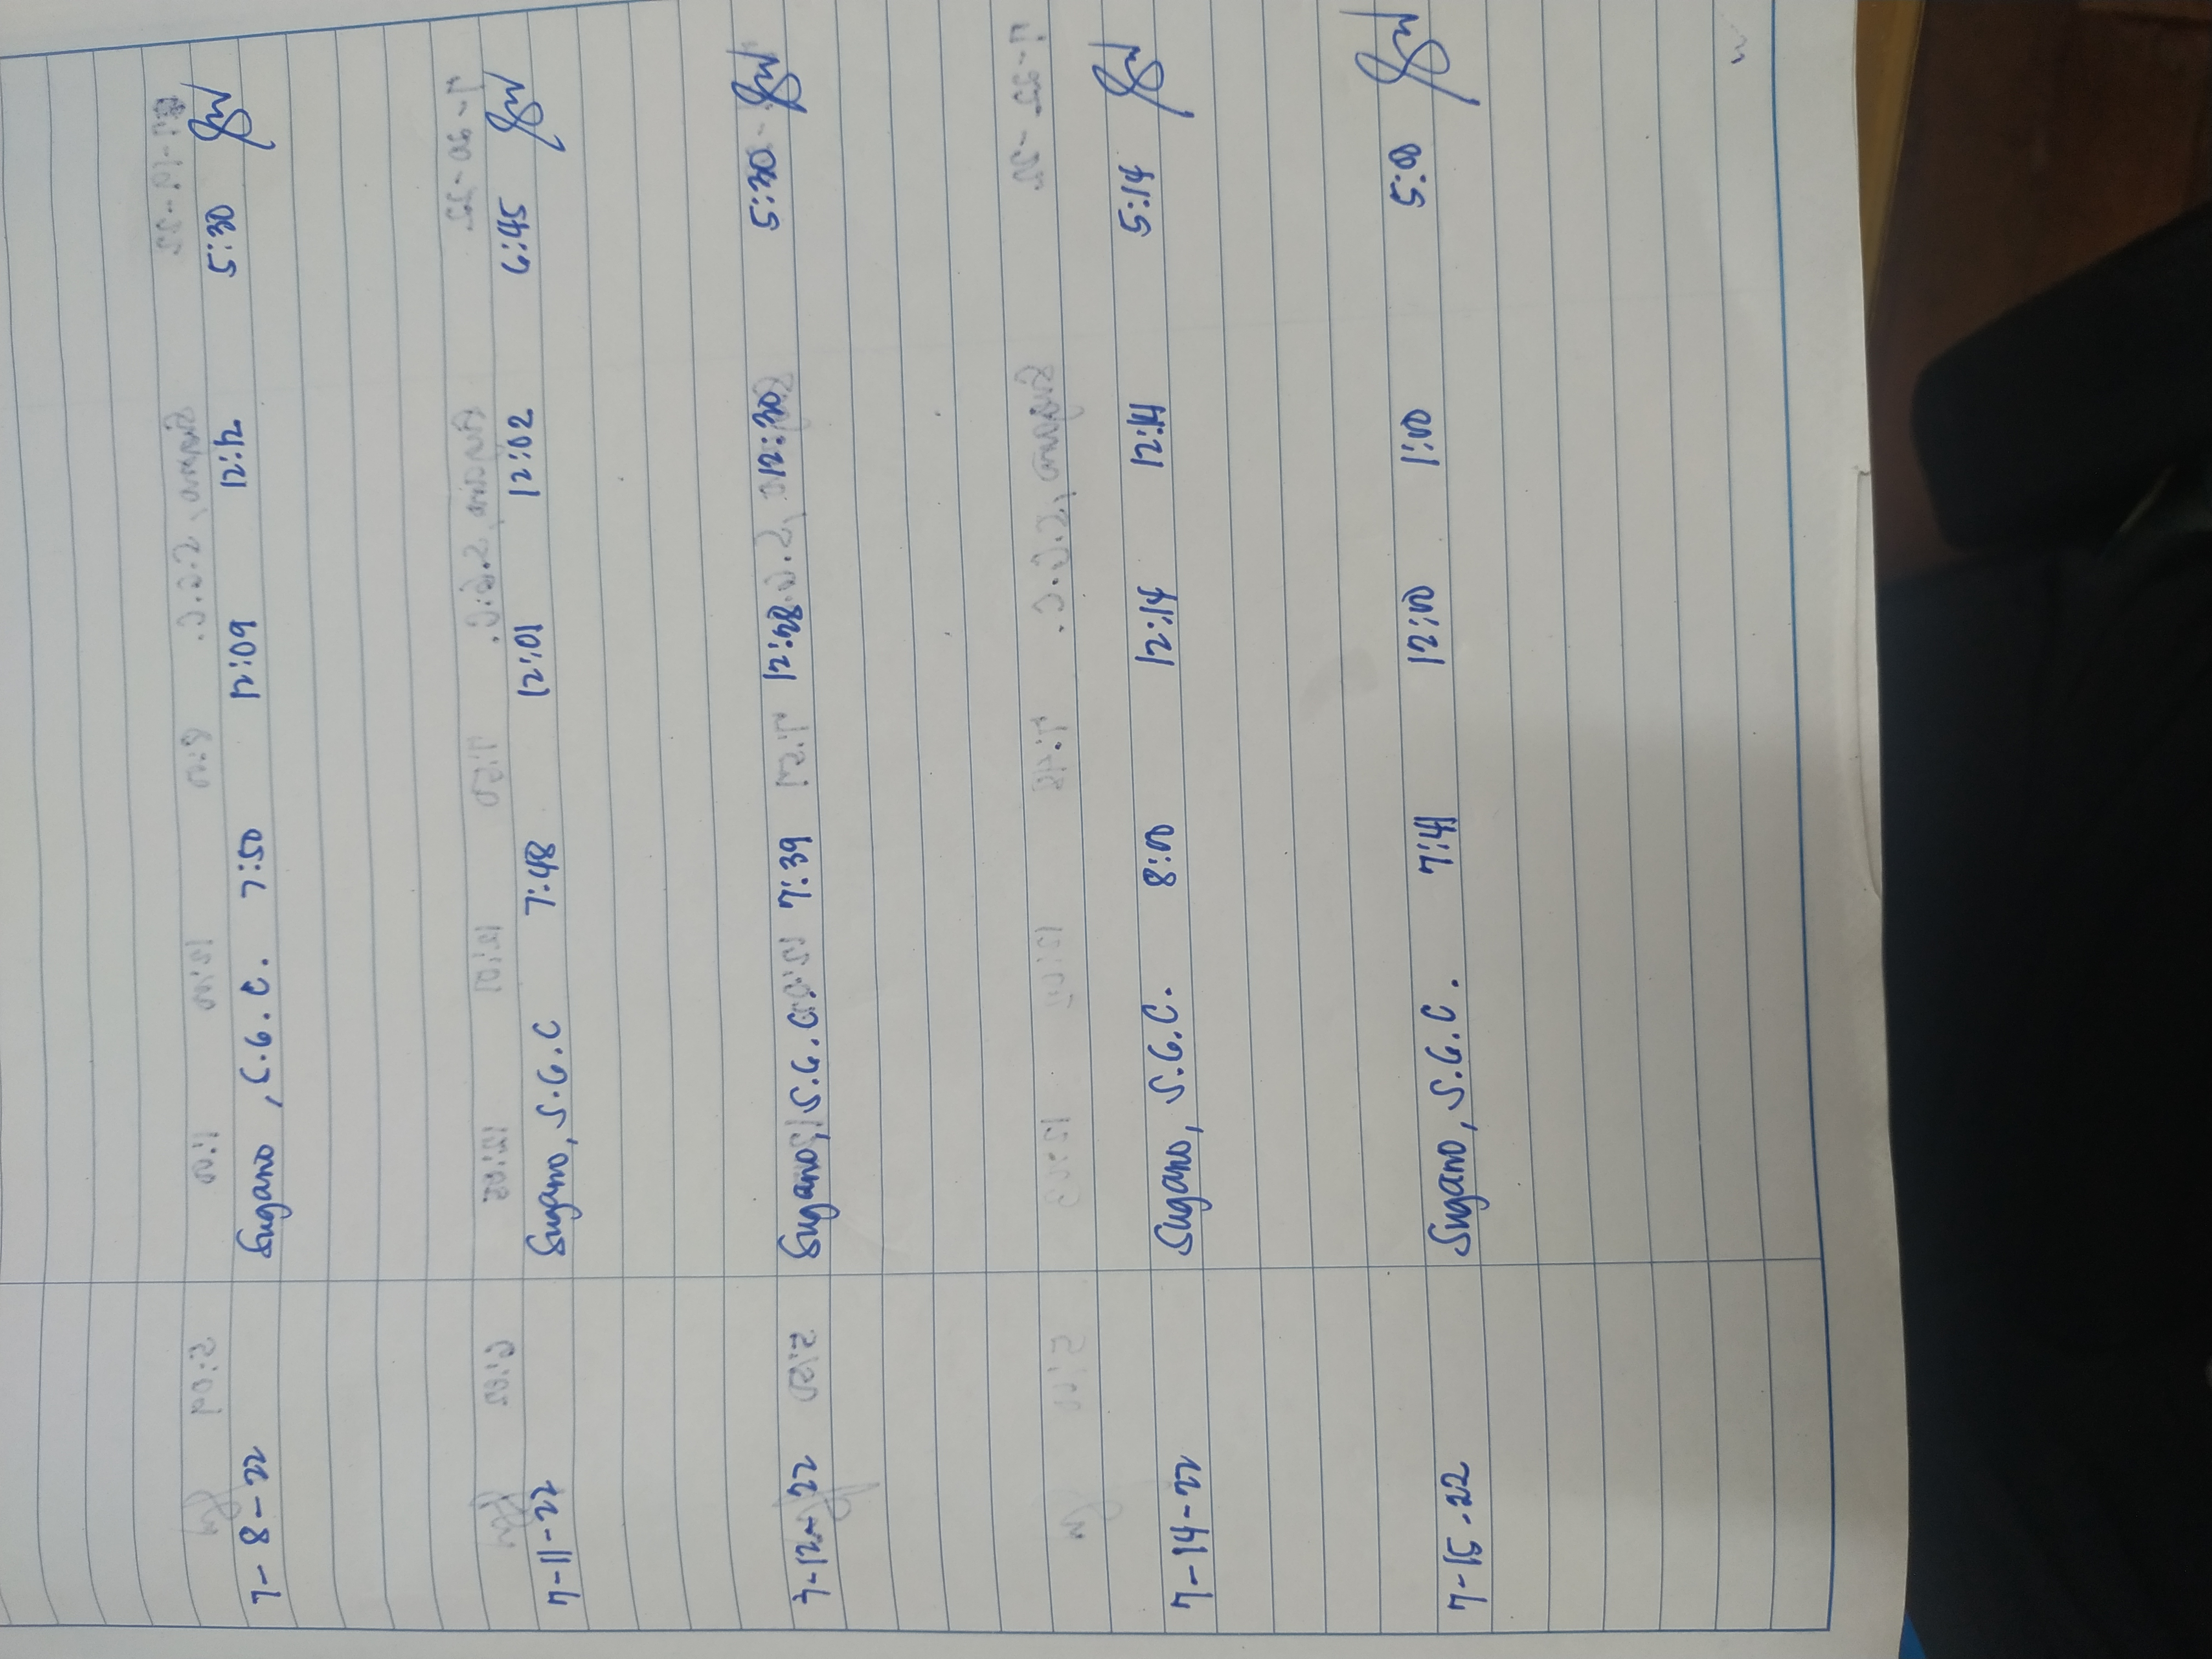 7-8-22 Sugano, S.G.C. 7:50 12:09 12:42 5:30
7-11-22 Sugano, S.G.C 7:48 12:01 12:02 6:45
7-12-22 Sugano, S.G.C. 7:39 12:28 12:30 5:30
7-14-22 Sugano, S.G.C. 8:00 12:14 12:44 5:14
7-15-22 Sugano, S.G.C. 7:44 12:00 1:00 5:00